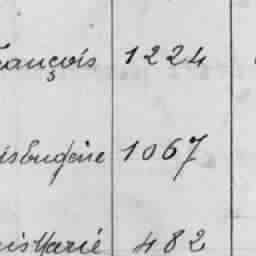 rançois 1224
is Eugène 1067
is Marie 482